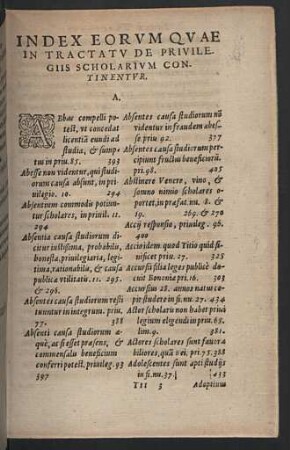 INDEX EORVM QVAE
IN TRACTATV DE PRIVILE
GIIS SCHOLARIVM CON-
TINENTVR.
A.
ABbas compelli po-
test, ut concedat
licentiã eundi ad
studia, & sumptus
in priu. 85. 393
Abesse non uidentur, qui studi
orum causa absunt, in pri
uilegio. 10. 294
Absentium commodo potiun-
tur scholares, in priuil. 11
294
Absentia causa studiorum di
citur iustissima, probabilis,
honesta, priuilegiaria, legi
tima, rationabilis, & causa
publica utilitatis. 11. 295.
& 296.
Absentes causa studiorum resti
tuuntur in integrum. priu.
77. 388
Absenti causa studiorum æ-
què, ac si esset præsens, &
commensalis beneficium
conferri potest. priuileg. 93
397
Absentes causa studiorum nõ
uidentur in fraudem abes-
se priu 92. 317
Absentes causa studiorum per-
cipiunt fructus beneficiorũ.
pri. 98. 425
Abstinere Venere, uino, &
somno nimio scholares o-
portet, in præfat. nu. 8. &
19. 269. & 270
Accusatoria responsio, priuileg. 96.
400
Acci dem quod Titio quid si-
nificet priu. 27. 325.
Accursii filia leges publicè do-
cuit Bononiæ pri. 16. 303
Accursius 28. annos natus cœ-
pit studere in fi. nu. 27. 434
Actor scholaris non habet priui
legium eligendi in priu. 65.
lim. 9. 381.
Actores scholares sunt fauora
biliores, quã rei. pri. 75. 388
Adolescentes sunt apti studijs
in fi. nu. 37. 433
TII 3 Adoptium